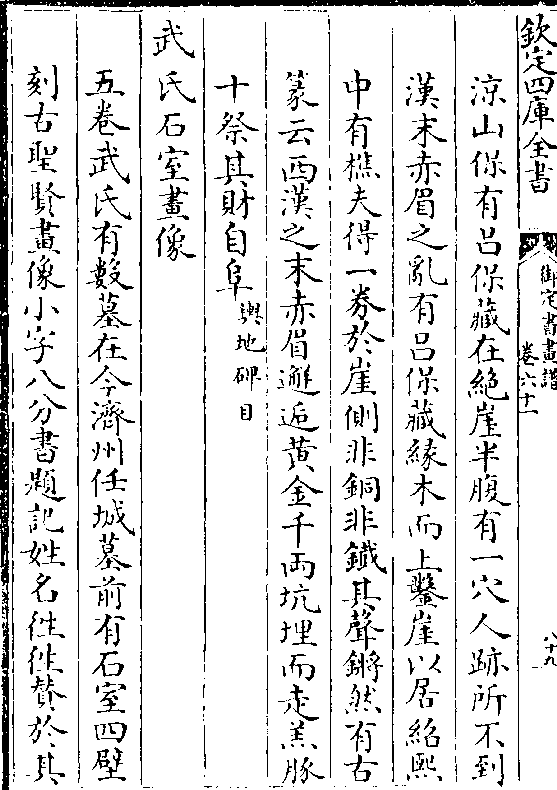 欽定四庫全書
御定書畫譜
卷六十一
八十九
涼山保有呂保藏在絶崖半腹有一穴人跡所不到
漢末赤眉之亂有呂保藏緣木而上鑿崖以居紹熙
中有樵夫得一劵於崖側非銅非鐵其聲鏘然有古
篆云西漢之末赤眉邂逅黃金千兩坑埋而走羔豚
十祭其財自阜輿地碑目
武氏石室畫像
五卷武氏有數墓在今濟州任城墓前有石室四壁
刻古聖賢畫像小字八分書題記姓名徃徃贊於其